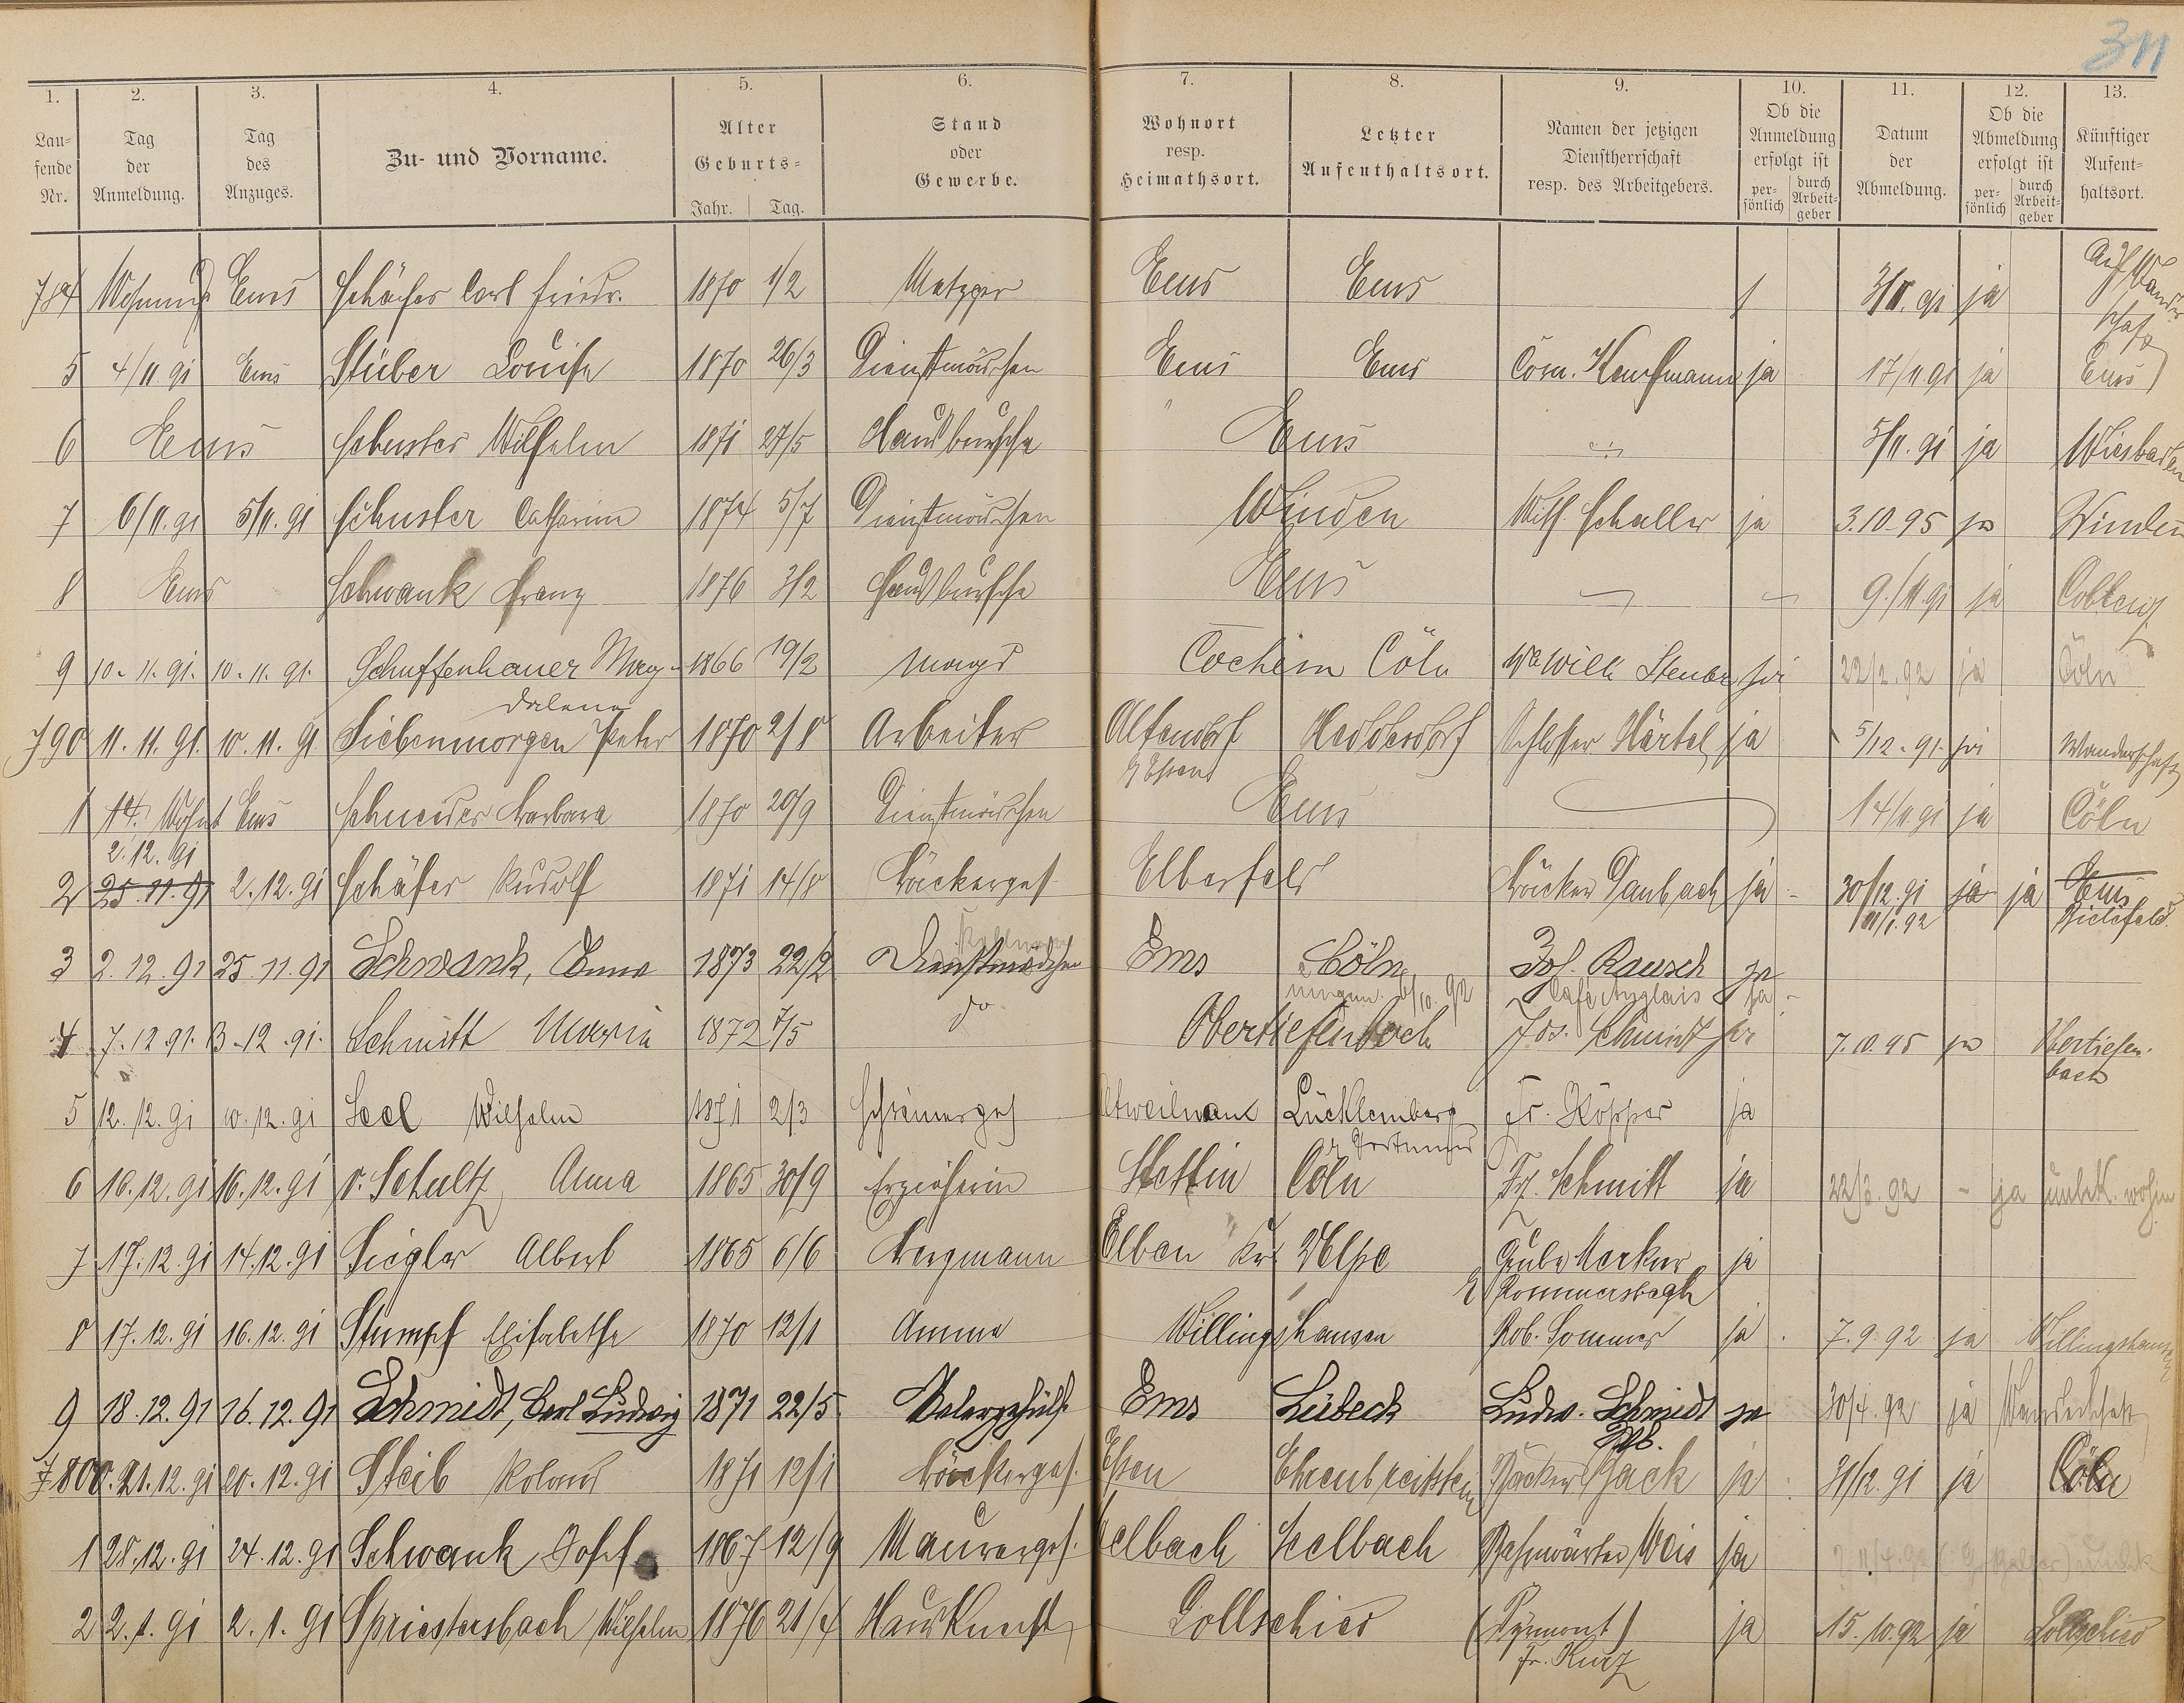 311
1. 2. 3. 4. 5. 6. 7. 8. 9. 10. 11. 12. 13.
Lau-
fende
Nr.
Tag
der
Anmeldung.
Tag
des
Anzuges.
Zu- und Vorname.
Alter
Geburts-
Jahr. Tag.
Stand
oder
Gewerbe.
Wohnort
resp.
Heimathsort.
Letzter
Aufenthaltsort.
Namen der jetzigen
Dienstherrschaft
resp. des Arbeitgebers.
Ob die
Anmeldung
erfolgt ist
per-
sönlich
durch
Arbeit-
geber
Datum
der
Abmeldung.
Ob die
Abmeldung
erfolgt ist
per-
sönlich
durch
Arbeit-
geber
Künftiger
Aufent-
haltsort.
784 Ems Schäfer Carl Friedr. 1870 1/2 Metzger Ems Ems 3/11. 91 ja Auf Wander
schaft
5 4/11 91 Ems Stüber Louise 1870 26/3 Dienstmädchen Ems Ems Com. Kauffmann ja 17/11 91 ja Ems
6 Ems Schuster Wilhelm 1871 27/5 Hausbursche Ems 5/11. 91 ja Wiesbaden
7 6/11. 91 5/11. 91 Schuster Catharina 1874 5/7 Dienstmädchen Winden Wilh. Schaller ja 3.10.95 ja Winden
8 Ems Schwank Franz 1876 3/2 Hausbursche Ems 9./11.91 ja Coblenz
9 10. 11. 91. 10. 11. 91. Schuffenhauer Mag-
dalena 1866 19/2 Magd Cochem Cöln Wwe Wilh Steuber ja 22/2. 92 ja Cöln
790 11. 11. 91. 10. 11. 91 Siebenmorgen Peter 1870 2/8 Arbeiter Altendorf
b/ Essen Heddesdorf Schlosser Härtel ja 5/12. 91. ja Wanderschaft
1 14. Wohnt Ems Schneider Barbara 1870 20/9 Dienstmädchen Ems 14/11 91 ja Cöln
2. 12. 91
2 25. 11. 91 2. 12. 91 Schäfer Rudolf 1871 14/8 Bäckerges. Elberfeld Bäcker Daubach ja 30/12. 91 ja ja Ems
11/1. 92 Bielefeld.
3 2. 12. 91 25. 11. 91 Schwank, Emma 1873 22/2 Dienstmädchen Ems Cöln Jos. Rausch ja
6/10. 92 Café Anglais ja
4 7. 12 91. 3. 12. 91. Schmitt Maria 1872 7/5 do Obertiefenbach Jos. Schmidt ja 7.10.95 ja Obertiefen-
bach
5 12. 12. 91 10. 12. 91 Seel Wilhelm 1871 2/3 Schreinerges Altweilnau Lücklemberg
b/ Dortmund Fr. Köpper ja
6 16. 12. 91 16. 12. 91 v. Schultz Anna 1865 30/9 Erzieherin Stettin Cöln Fz. Schmitt ja 22/3. 92 - ja unbek. wohin
7 17. 12. 91 14. 12. 91 Siegler Albert 1865 6/6 Bergmann Elben Kr. Olpe Grube Merkur ja
8 17. 12. 91 16. 12. 91 Stumpf Elisabethe 1870 12/1 Amme Willingshausen Rob. Sommer ja 7. 9. 92 ja Willingshausen
9 18. 12. 91 16. 12. 91 Schmidt, Carl Ludwig 1871 22/5 Malergehülfe Ems Lübeck Ludw. Schmidt ja 30/4. 92 ja Wanderschaft
7800. 21. 12. 91 20. 12. 91 Steib Roland 1871 12/1 Bäckerges. Essen Ehrenbreitstein Bäcker Jack ja 31/12. 91 ja Cöln
1 28. 12. 91 24. 12. 91 Schwank, Josef 1867 12/9 Maurerges. Seelbach Seelbach Bahnwärter Weis ja
2 2. 1. 91 2. 1. 91 Spriestersbach Wilhelm 1876 21/4 Hausknecht Lollschied (Pyrmont) ja 15. 10. 92 ja Lollschied
Fr. Kurz